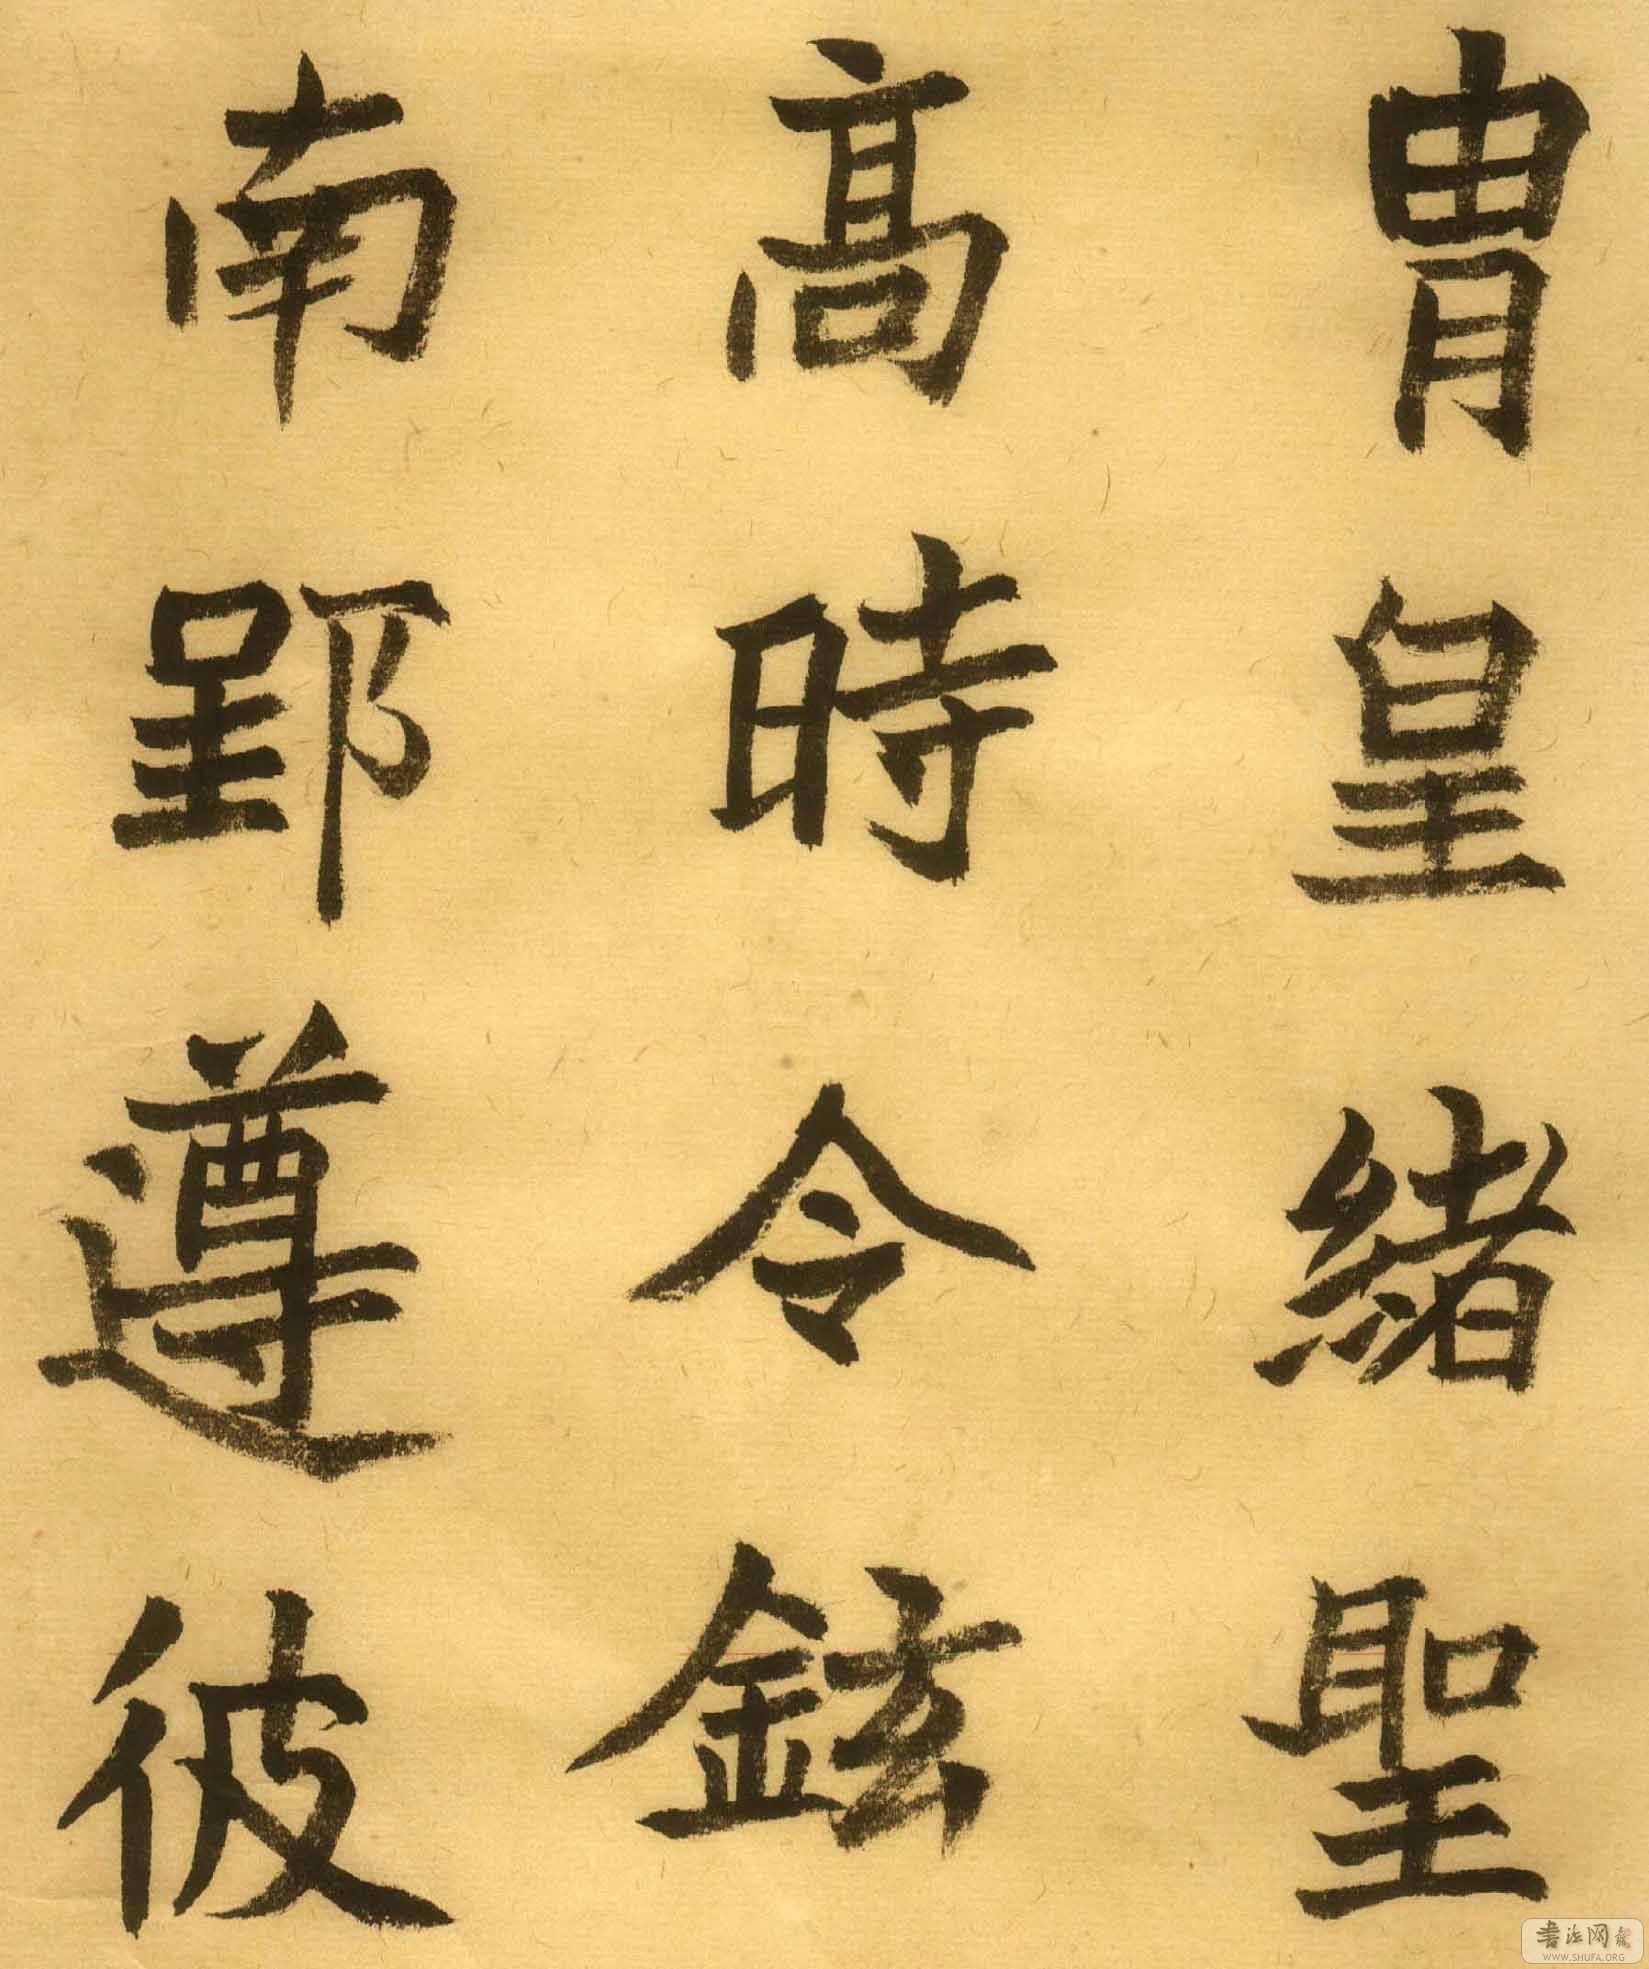 胄皇緒聖
高時令鉉
南郢遵彼
书法网
WWW.SHUFA.ORG